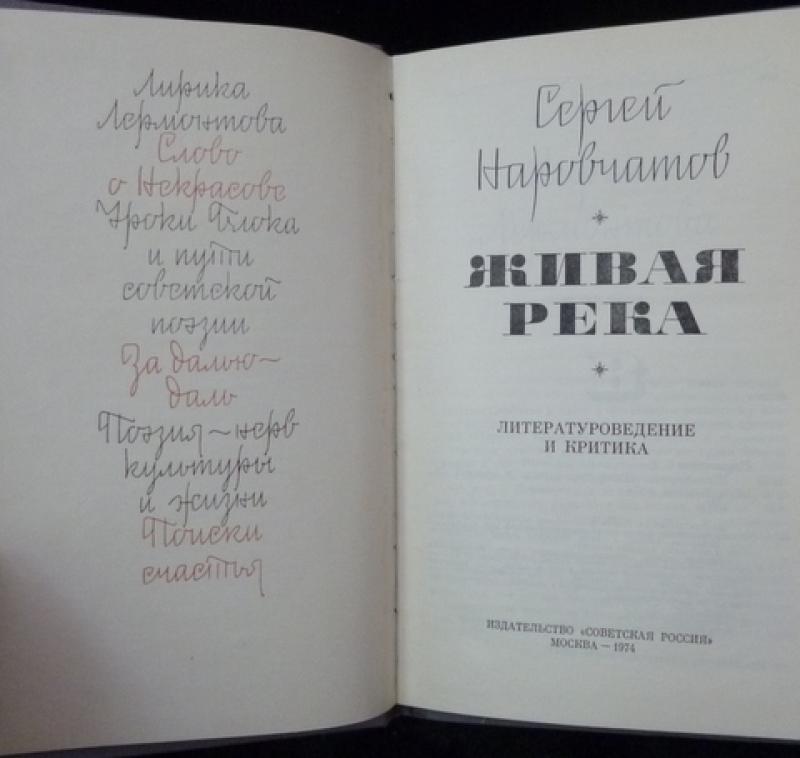 Лирика
Лермонтова
Слово
о Некрасове
Уроки Блока
и пути
советской
поэзии
За далью~
даль
Поэзия~нерв
культуры
и жизни
Поиски
счастья
Сергей
Наровчатов
ЖИВАЯ
РЕКА
ЛИТЕРАТУРОВЕДЕНИЕ
И КРИТИКА
ИЗДАТЕЛЬСТВО «СОВЕТСКАЯ РОССИЯ»
МОСКВА — 1974